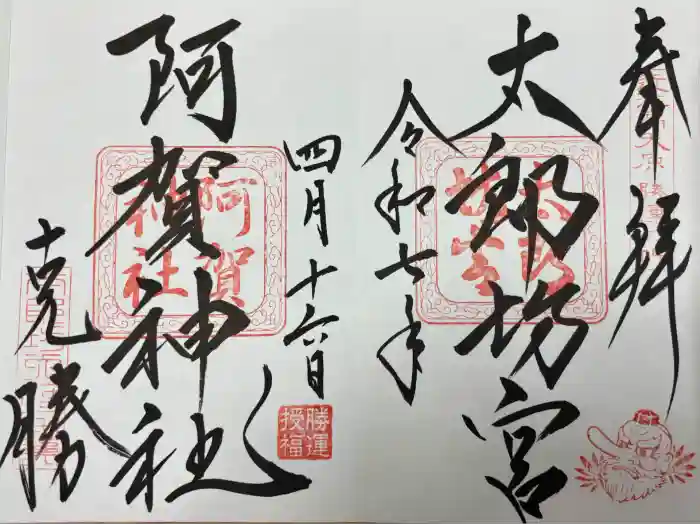 奉拝
太郎坊宮
太郎坊宮
令和七年
四月十六日
勝運授福
阿賀神社
阿賀神社
克勝